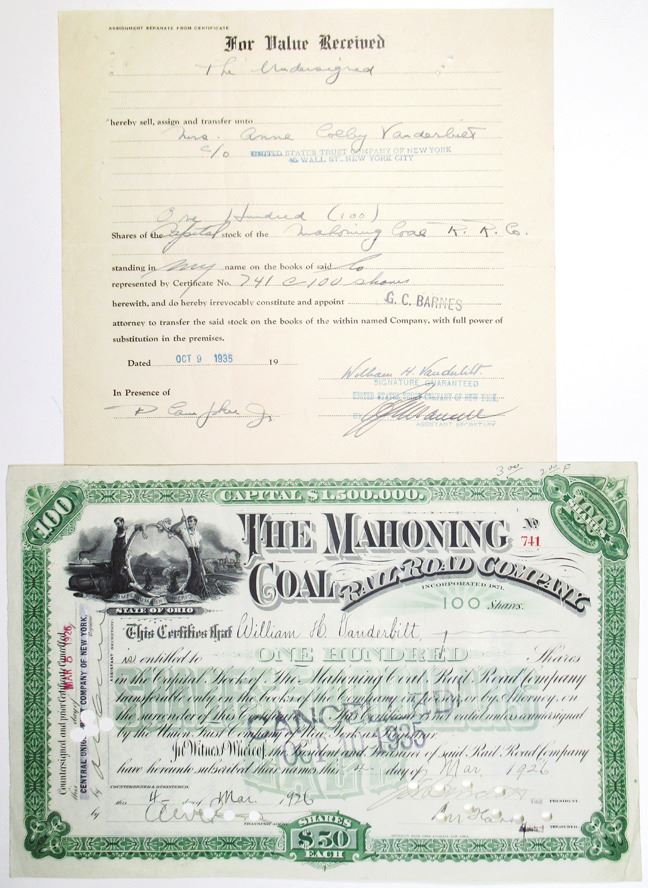 ASSIGNMENT SEPARATE FROM CERTIFICATE
For Value Received
The Undersigned
hereby sell, assign and transfer unto
Mrs. Anne Colby Vanderbilt
c/o UNITED STATES TRUST COMPANY OF NEW YORK
WALL ST. NEW YORK CITY
One Hundred (100)
Shares of the Capital stock of the Mahoning Coal R. R. Co.
standing in my name on the books of said Co
represented by Certificate No. 741 c 100 shares
herewith, and do hereby irrevocably constitute and appoint G. C. BARNES
attorney to transfer the said stock on the books of the within named Company, with full power of
substitution in the premises.
Dated OCT 9 1935 19
William H. Vanderbilt.
SIGNATURE GUARANTEED
In Presence of
UNITED STATES TRUST COMPANY OF NEW YORK
BY
ASSISTANT SECRETARY
3 00 2 00 F
CAPITAL $1,500,000.
100
THE MAHONING
COAL RAIL ROAD COMPANY
No 741
INCORPORATED 1871.
100 Shares.
STATE OF OHIO
This Certifies that William H. Vanderbilt,
is entitled to ONE HUNDRED Shares
in the Capital Stock of The Mahoning Coal Rail Road Company
transferable only on the books of the Company in person or by Attorney, on
the surrender of this Certificate. This Certificate is not valid unless countersigned
by the Union Trust Company of New York as Registrar.
CANCELLED
OCT 1935
In Witness Whereof, the President and Treasurer of said Rail Road Company
have hereunto subscribed their names this 4 day of Mar. 1926
COUNTERSIGNED & REGISTERED
this 4 day of Mar. 1926
by
TRANSFER AGENT
PRESIDENT
TREASURER
SHARES
$50
EACH
Countersigned and prior Certificate Cancelled
this day of
MAR 8 1926
CENTRAL UNION TRUST COMPANY OF NEW YORK,
by